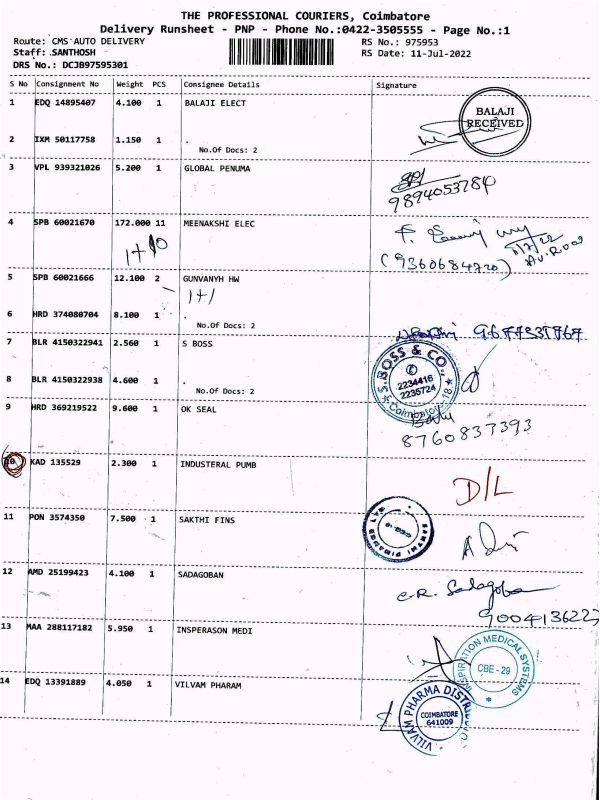 THE PROFESSIONAL COURIERS, Coimbatore
Delivery Runsheet - PNP - Phone No.:0422-3505555 - Page No.:1
Route: CMS AUTO DELIVERY RS No.: 975953
Staff: SANTHOSH RS Date: 11-Jul-2022
DRS No.: DCJB97595301
S No Consignment No Weight PCS Consignee Details Signature
1 EDQ 14895407 4.100 1 BALAJI ELECT
BALAJI
RECEIVED
2 IXM 50117758 1.150 1 .
No.Of Docs: 2
3 VPL 939321026 5.200 1 GLOBAL PENUMA
9894053784
4 SPB 60021670 172.000 11 MEENAKSHI ELEC
1+10
(9360684720)
5 SPB 60021666 12.100 2 GUNVANYH HW
1+1
6 HRD 374080704 8.100 1 .
No.Of Docs: 2
7 BLR 4150322941 2.560 1 S BOSS
S.BOSS & CO.
2234416
2235724
Coimbatore-18
8 BLR 4150322938 4.600 1 .
No.Of Docs: 2
9 HRD 369219522 9.600 1 OK SEAL
8760837393
10 KAD 135529 2.300 1 INDUSTERAL PUMB
D/L
11 PON 3574350 7.500 1 SAKTHI FINS
12 AMD 25199423 4.100 1 SADAGOBAN
C.R. Sadagoban
13 MAA 288117182 5.950 1 INSPERASON MEDI
INSPIRATION MEDICAL SYSTEMS
CBE - 29
14 EDQ 13391889 4.050 1 VILVAM PHARAM
VILVAM PHARMA
COIMBATORE
641009